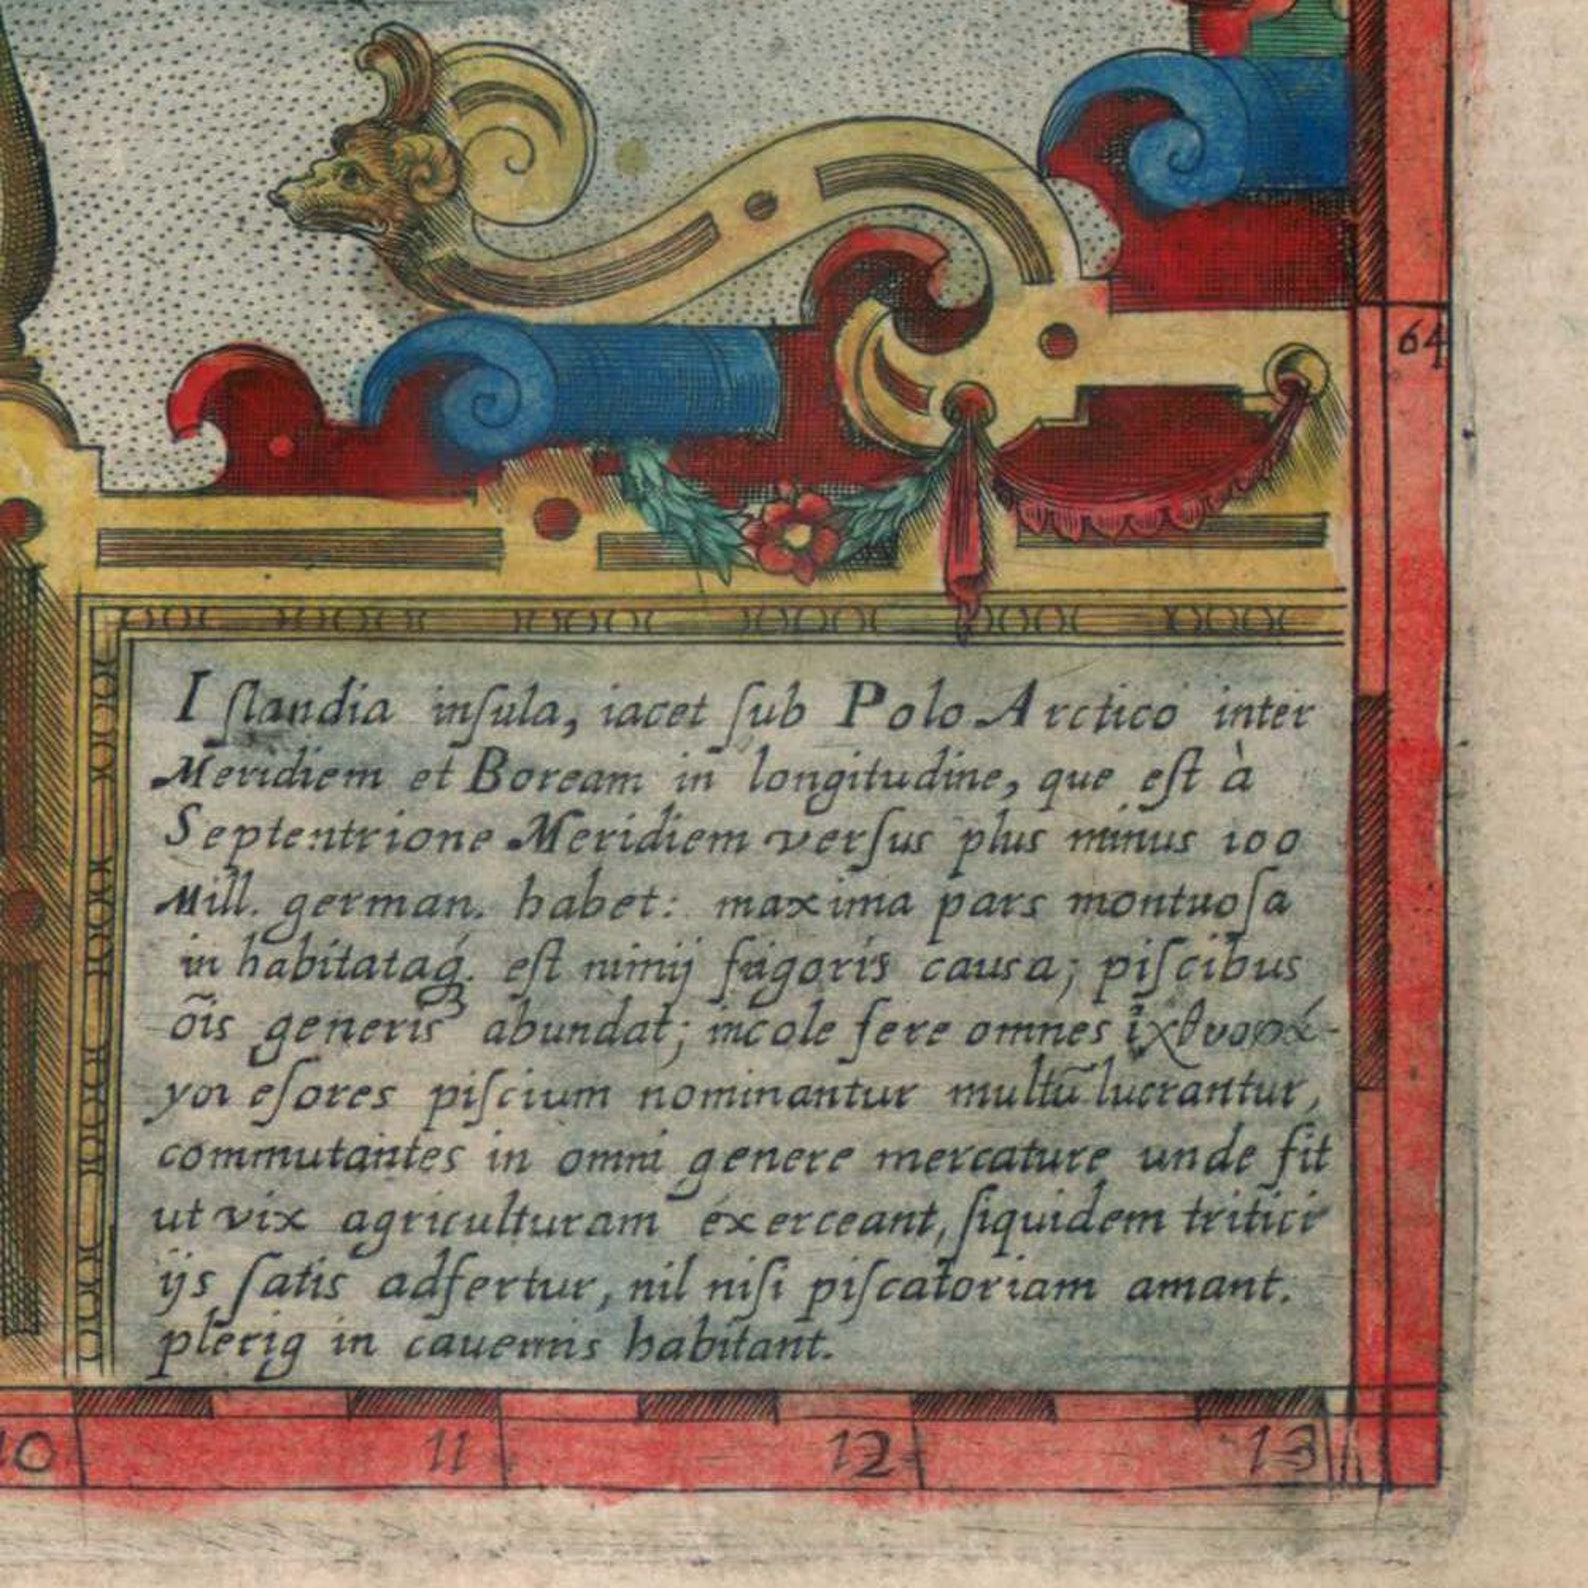 64
Iſlandia inſula, iacet ſub Polo Arctico inter
Meridiem et Boream in longitudine, que eſt à
Septentrione Meridiem verſus plus minus 100
Mill. german. habet: maxima pars montuoſa
in habitataq́ꝫ. eſt nimij frigoris causa; piſcibus
õis generis abundat; incole fere omnes ἰχθυοφά-
γοι eſores piſcium nominantur multũ lucrantur,
commutantes in omni genere mercature unde fit
ut vix agriculturam exerceant, ſiquidem tritici
ijs ſatis adfertur, nil niſi piſcatoriam amant.
plerig in cauernis habitant.
10 11 12 13